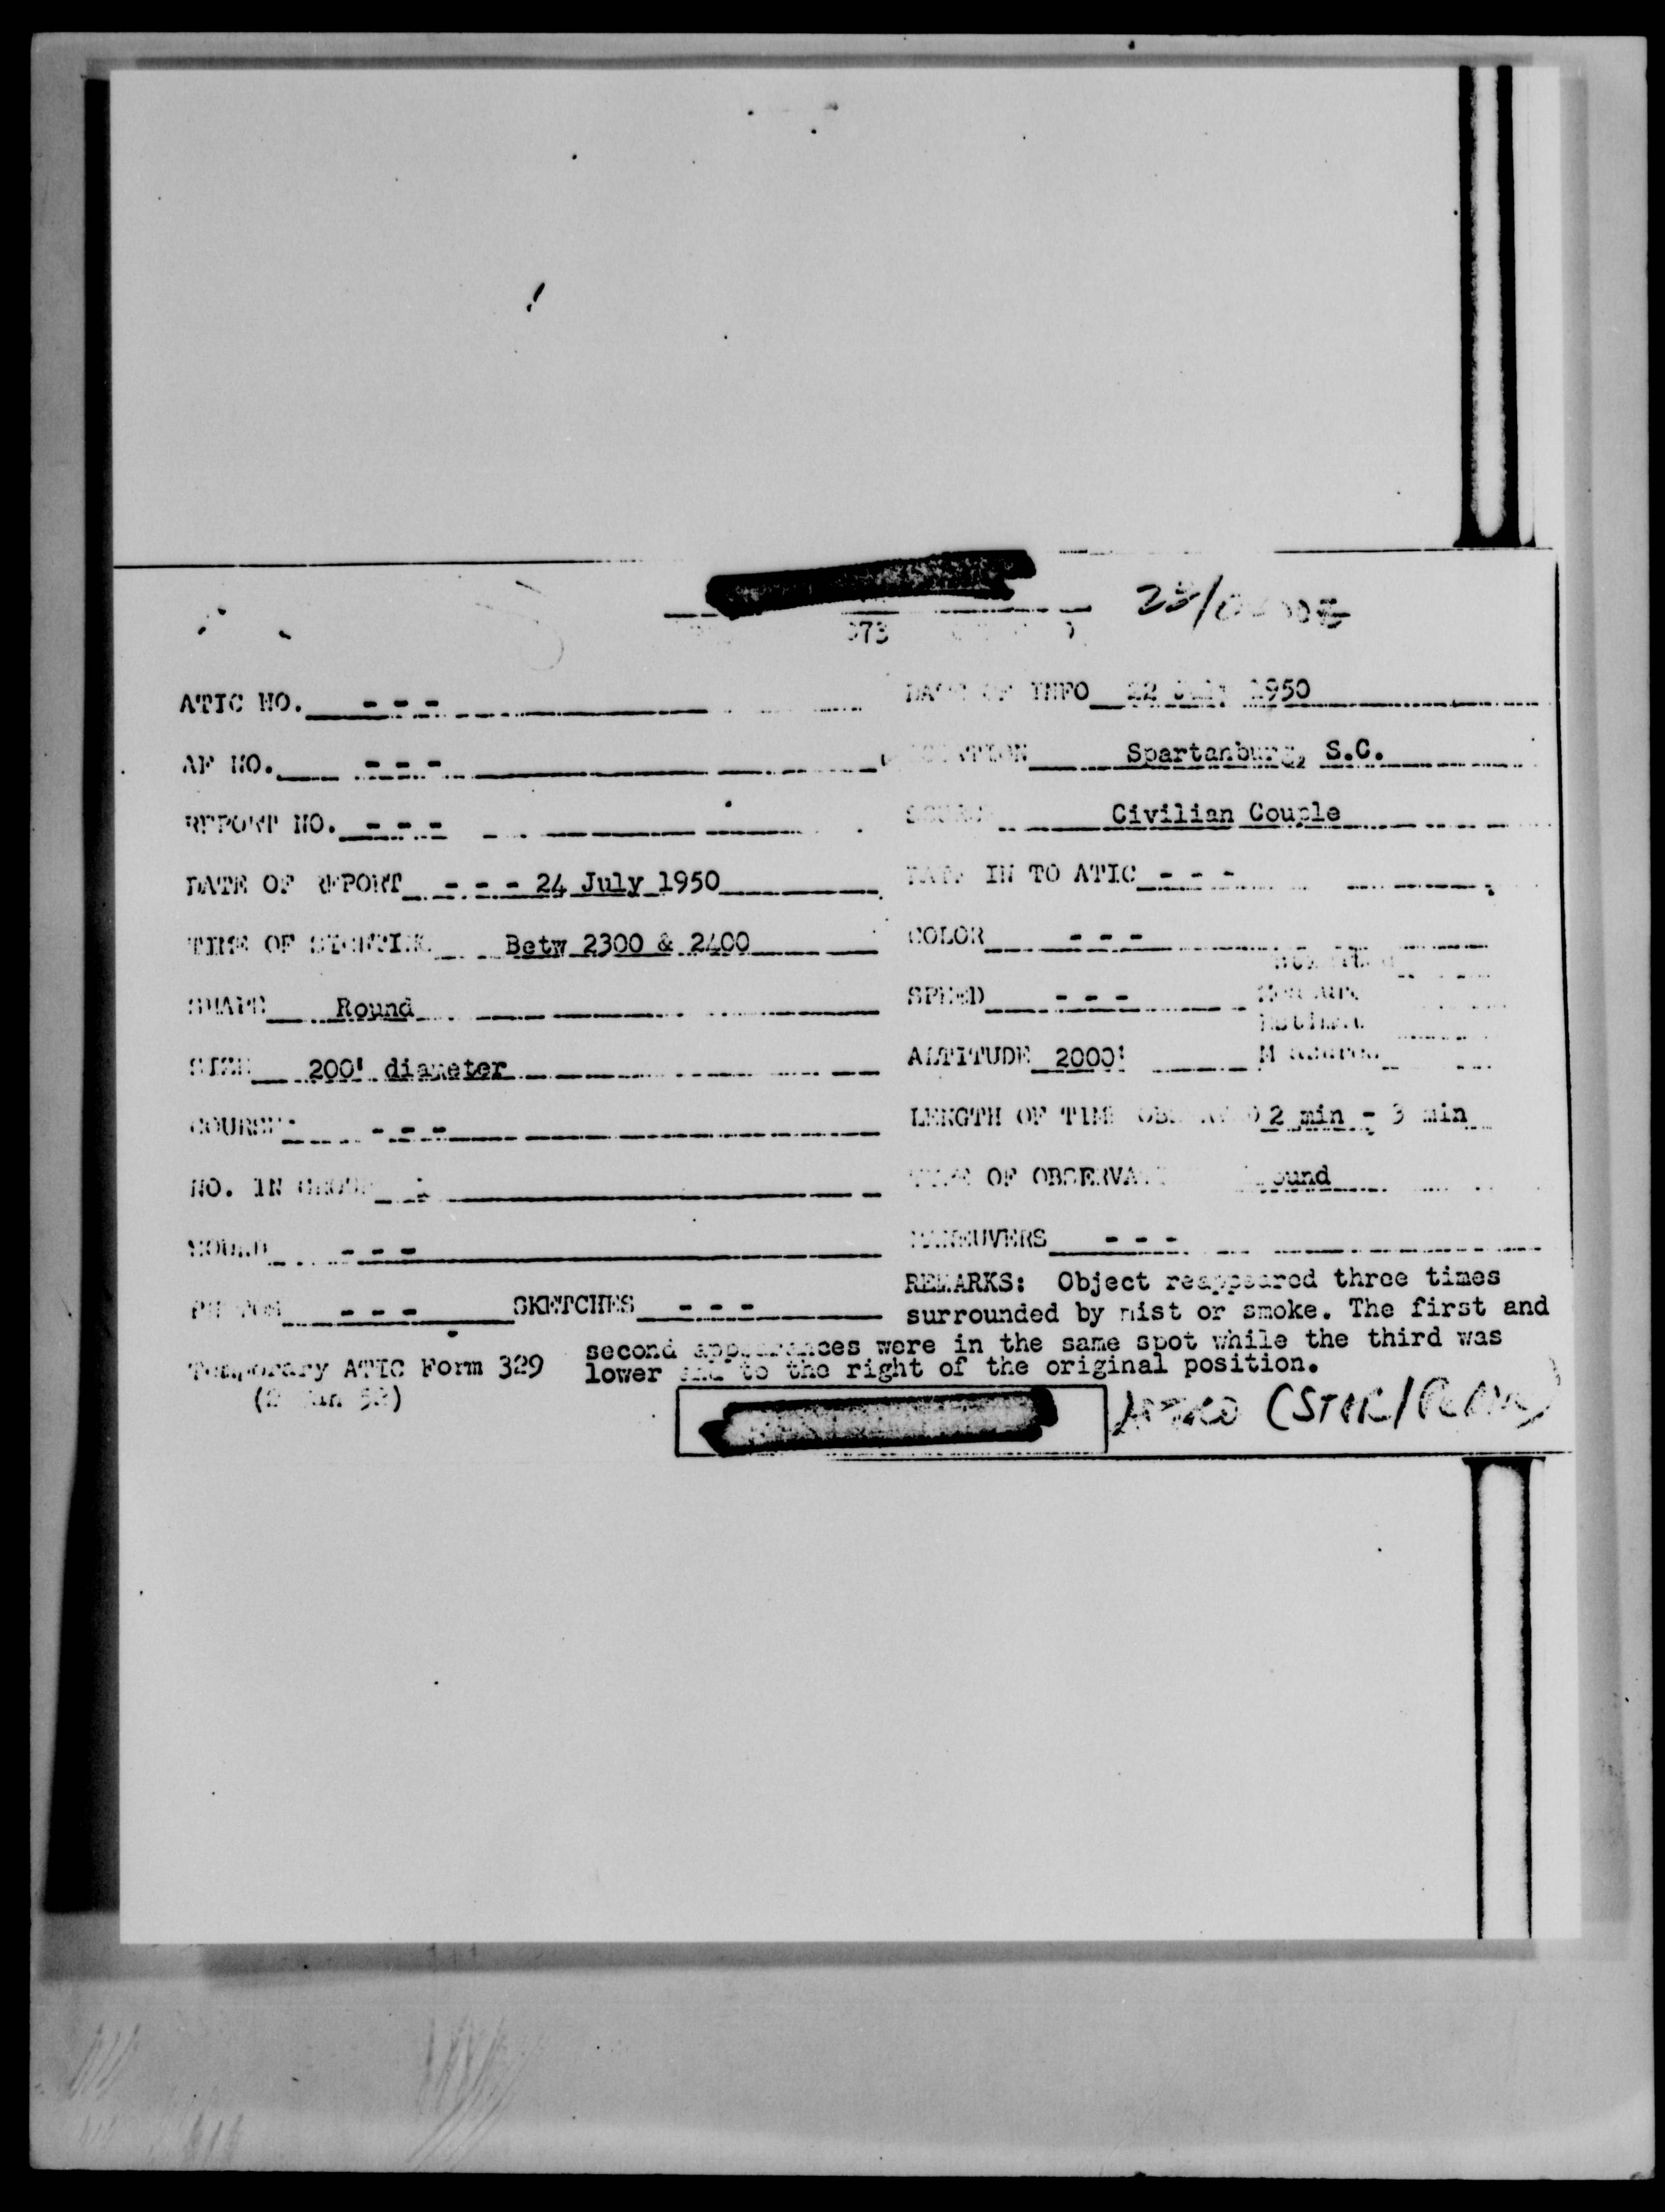 73
ATIC NO. - - -
DATE OF INFO 22 July 1950
AF NO. - - -
LOCATION Spartanburg, S.C.
REPORT NO. - - -
SOURCE Civilian Couple
DATE OF REPORT - - - 24 July 1950
DATE IN TO ATIC - - -
TIME OF SIGHTING Betw 2300 & 2400
COLOR - - -
SHAPE Round
SPEED - - -
SIZE 200' diameter
ALTITUDE 2000'
COURSE - - -
LENGTH OF TIME OBSERVED 2 min - 3 min
NO. IN GROUP
TYPE OF OBSERVATION Ground
SOUND - - -
MANEUVERS - - -
PHOTOS - - - SKETCHES - - -
REMARKS: Object reappeared three times
surrounded by mist or smoke. The first and
second appearances were in the same spot while the third was
lower and to the right of the original position.
Temporary ATIC Form 329
(2 Jan 52)
ASTRO (STAR/